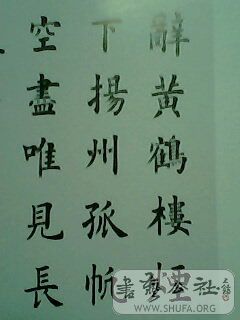 辭黃鶴樓煙
下揚州孤帆
空盡唯見長
書藝公社
WWW.SHUFA.ORG